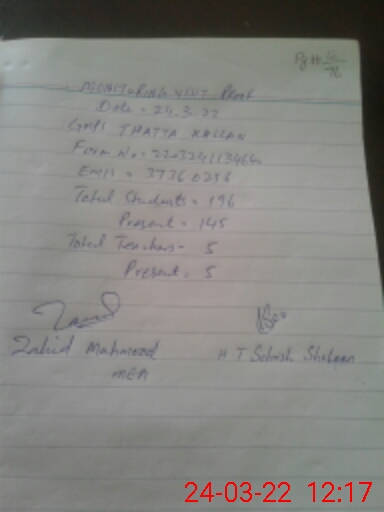 Pg # 2/76
MONITORING VISIT PROOF
Date = 24.3.22
GMPS THATTA KALLAN
Form No =
Emis = 37360256
Total Students = 196
Present = 145
Total Teachers = 5
Present = 5
Zahid Mahmood
MEA
H T Sehrish Shaheen
24-03-22 12:17